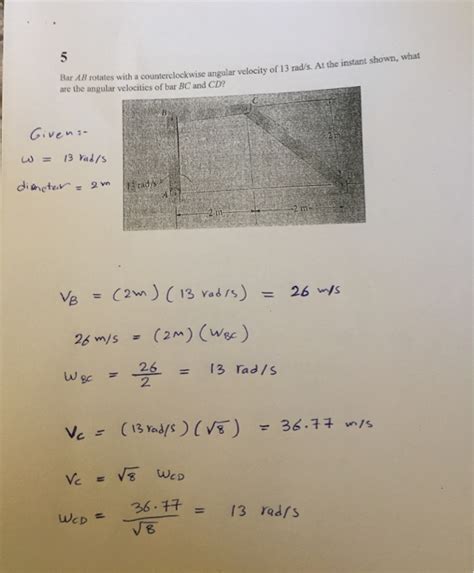 5
Bar AB rotates with a counterclockwise angular velocity of 13 rad/s. At the instant shown, what
are the angular velocities of bar BC and CD?
Given:-
ω = 13 rad/s
diameter = 2m
B
C
13 rad/s
A
2 m
2 m
V_B = (2m) (13 rad/s) = 26 m/s
26 m/s = (2M) (W_BC)
W_BC = 26/2 = 13 rad/s
V_C = (13 rad/s) (√8) = 36.77 m/s
V_C = √8 W_CD
W_CD = 36.77/√8 = 13 rad/s